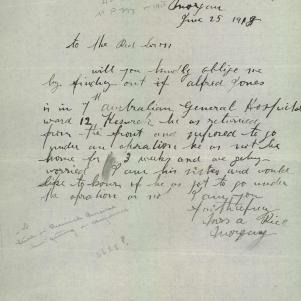 Morgan
June 25 1918
to the Red Cross
will you kindly oblige me
by finding out if Alfred Jones
is in 7th Australian General Hospital
ward 12 Keswick he as returned
from the front and suposed to go
under an aboration he as not the
home for 3 weeks and are geting
worried I am his sister and would
like to know if he as got to go under
the aboration or not I am you
faithfully
Morgan